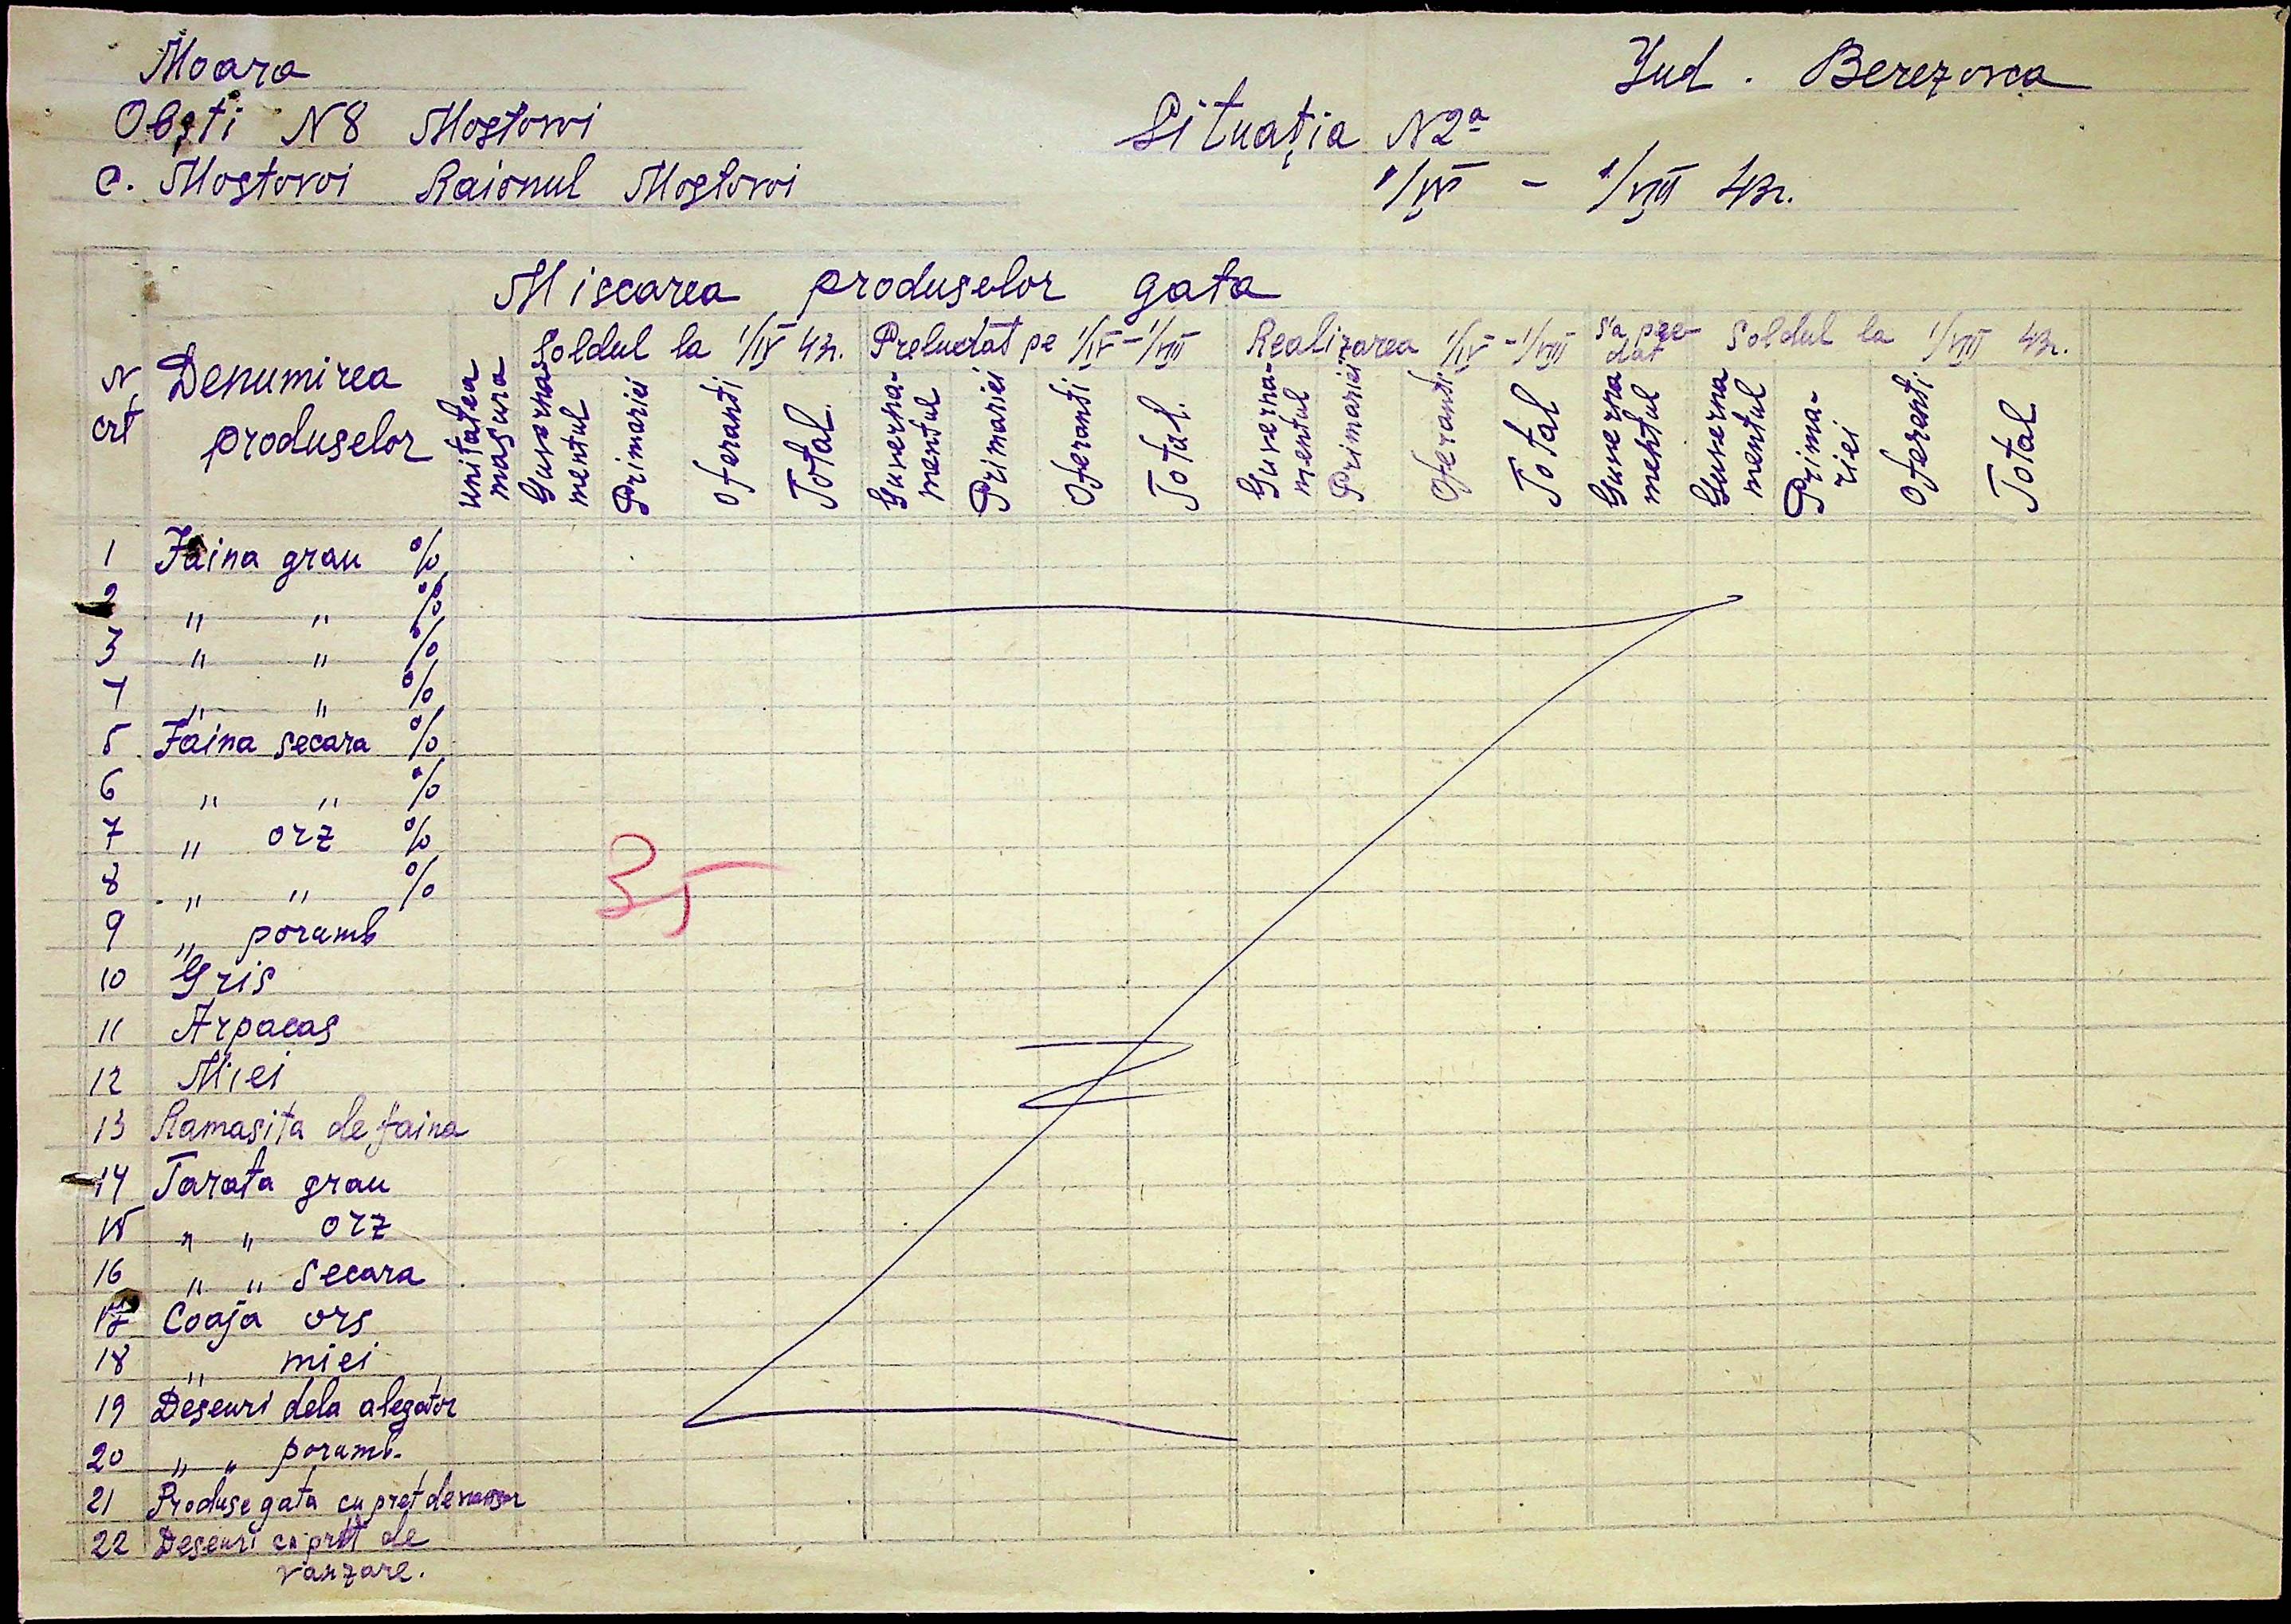 Moara
Jud. Berezovca
Obști N8 Mostovoi
Situația N2ª
C. Mostovoi Raionul Mostovoi
1/IV - 1/VIII 43r.
Miscarea produselor gata
N crt
Denumirea produselor
unitatea masura
Soldul la 1/IV 43r.
Preluctat pe 1/IV-1/VIII
Realizarea 1/IV-1/VIII
S'a predat
Soldul la 1/VIII 43r.
Guvernamentul Primariei Oferanti Total.
Guverna-mentul Primariei Oferanti Total.
Guverna-mentul Primariei Oferanti Total
Guvernamentul
Guvernamentul Prima-riei Oferanti Total
1 Faina grau %
2 " " %
3 " " %
4 " " %
5 Faina secara %
6 " " %
7 " orz %
8 " " %
35
9 " porumb
10 Gris
11 Arpacas
12 Miei
13 Ramasita de faina
14 Tarata grau
15 " " orz
16 " " secara
17 Coaja ors
18 " miei
19 Deșeuri dela alegator
20 " " porumb.
21 Produse gata cu pret de
22 Deșeuri cu pret de
vanzare.